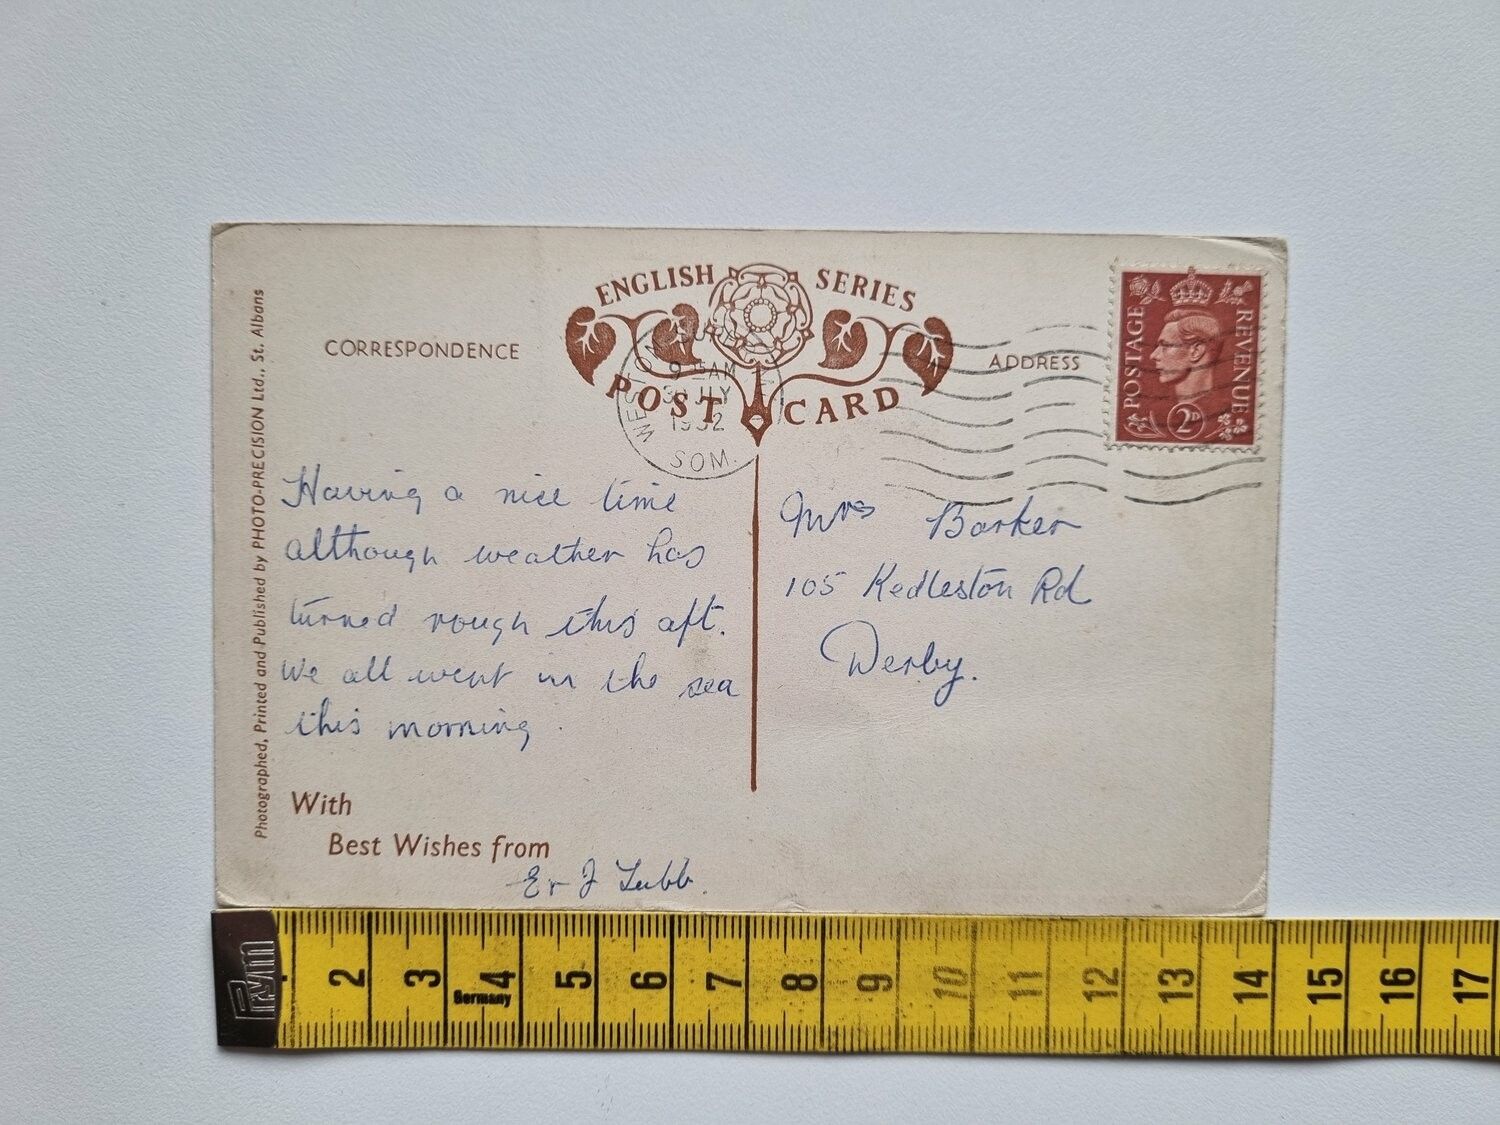 ENGLISH SERIES
POST CARD
CORRESPONDENCE
ADDRESS
POSTAGE
REVENUE
2D
WESTON SUPER
9 AM
JLY
1952
SOM.
Having a nice time
although weather has
turned rough this aft.
We all went in the sea
this morning.
With
Best Wishes from
J Tubb.
Mrs Barker
105 Kedleston Rd
Derby.
Photographed, Printed and Published by PHOTO-PRECISION Ltd., St. Albans
Prym
2 3 4 5 6 7 8 9 10 11 12 13 14 15 16 17
Germany